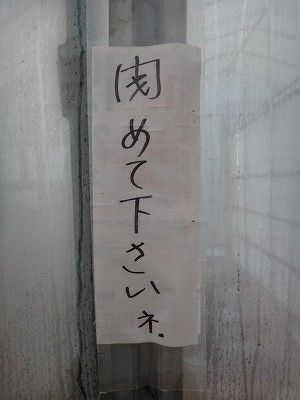 閉めて下さいネ.